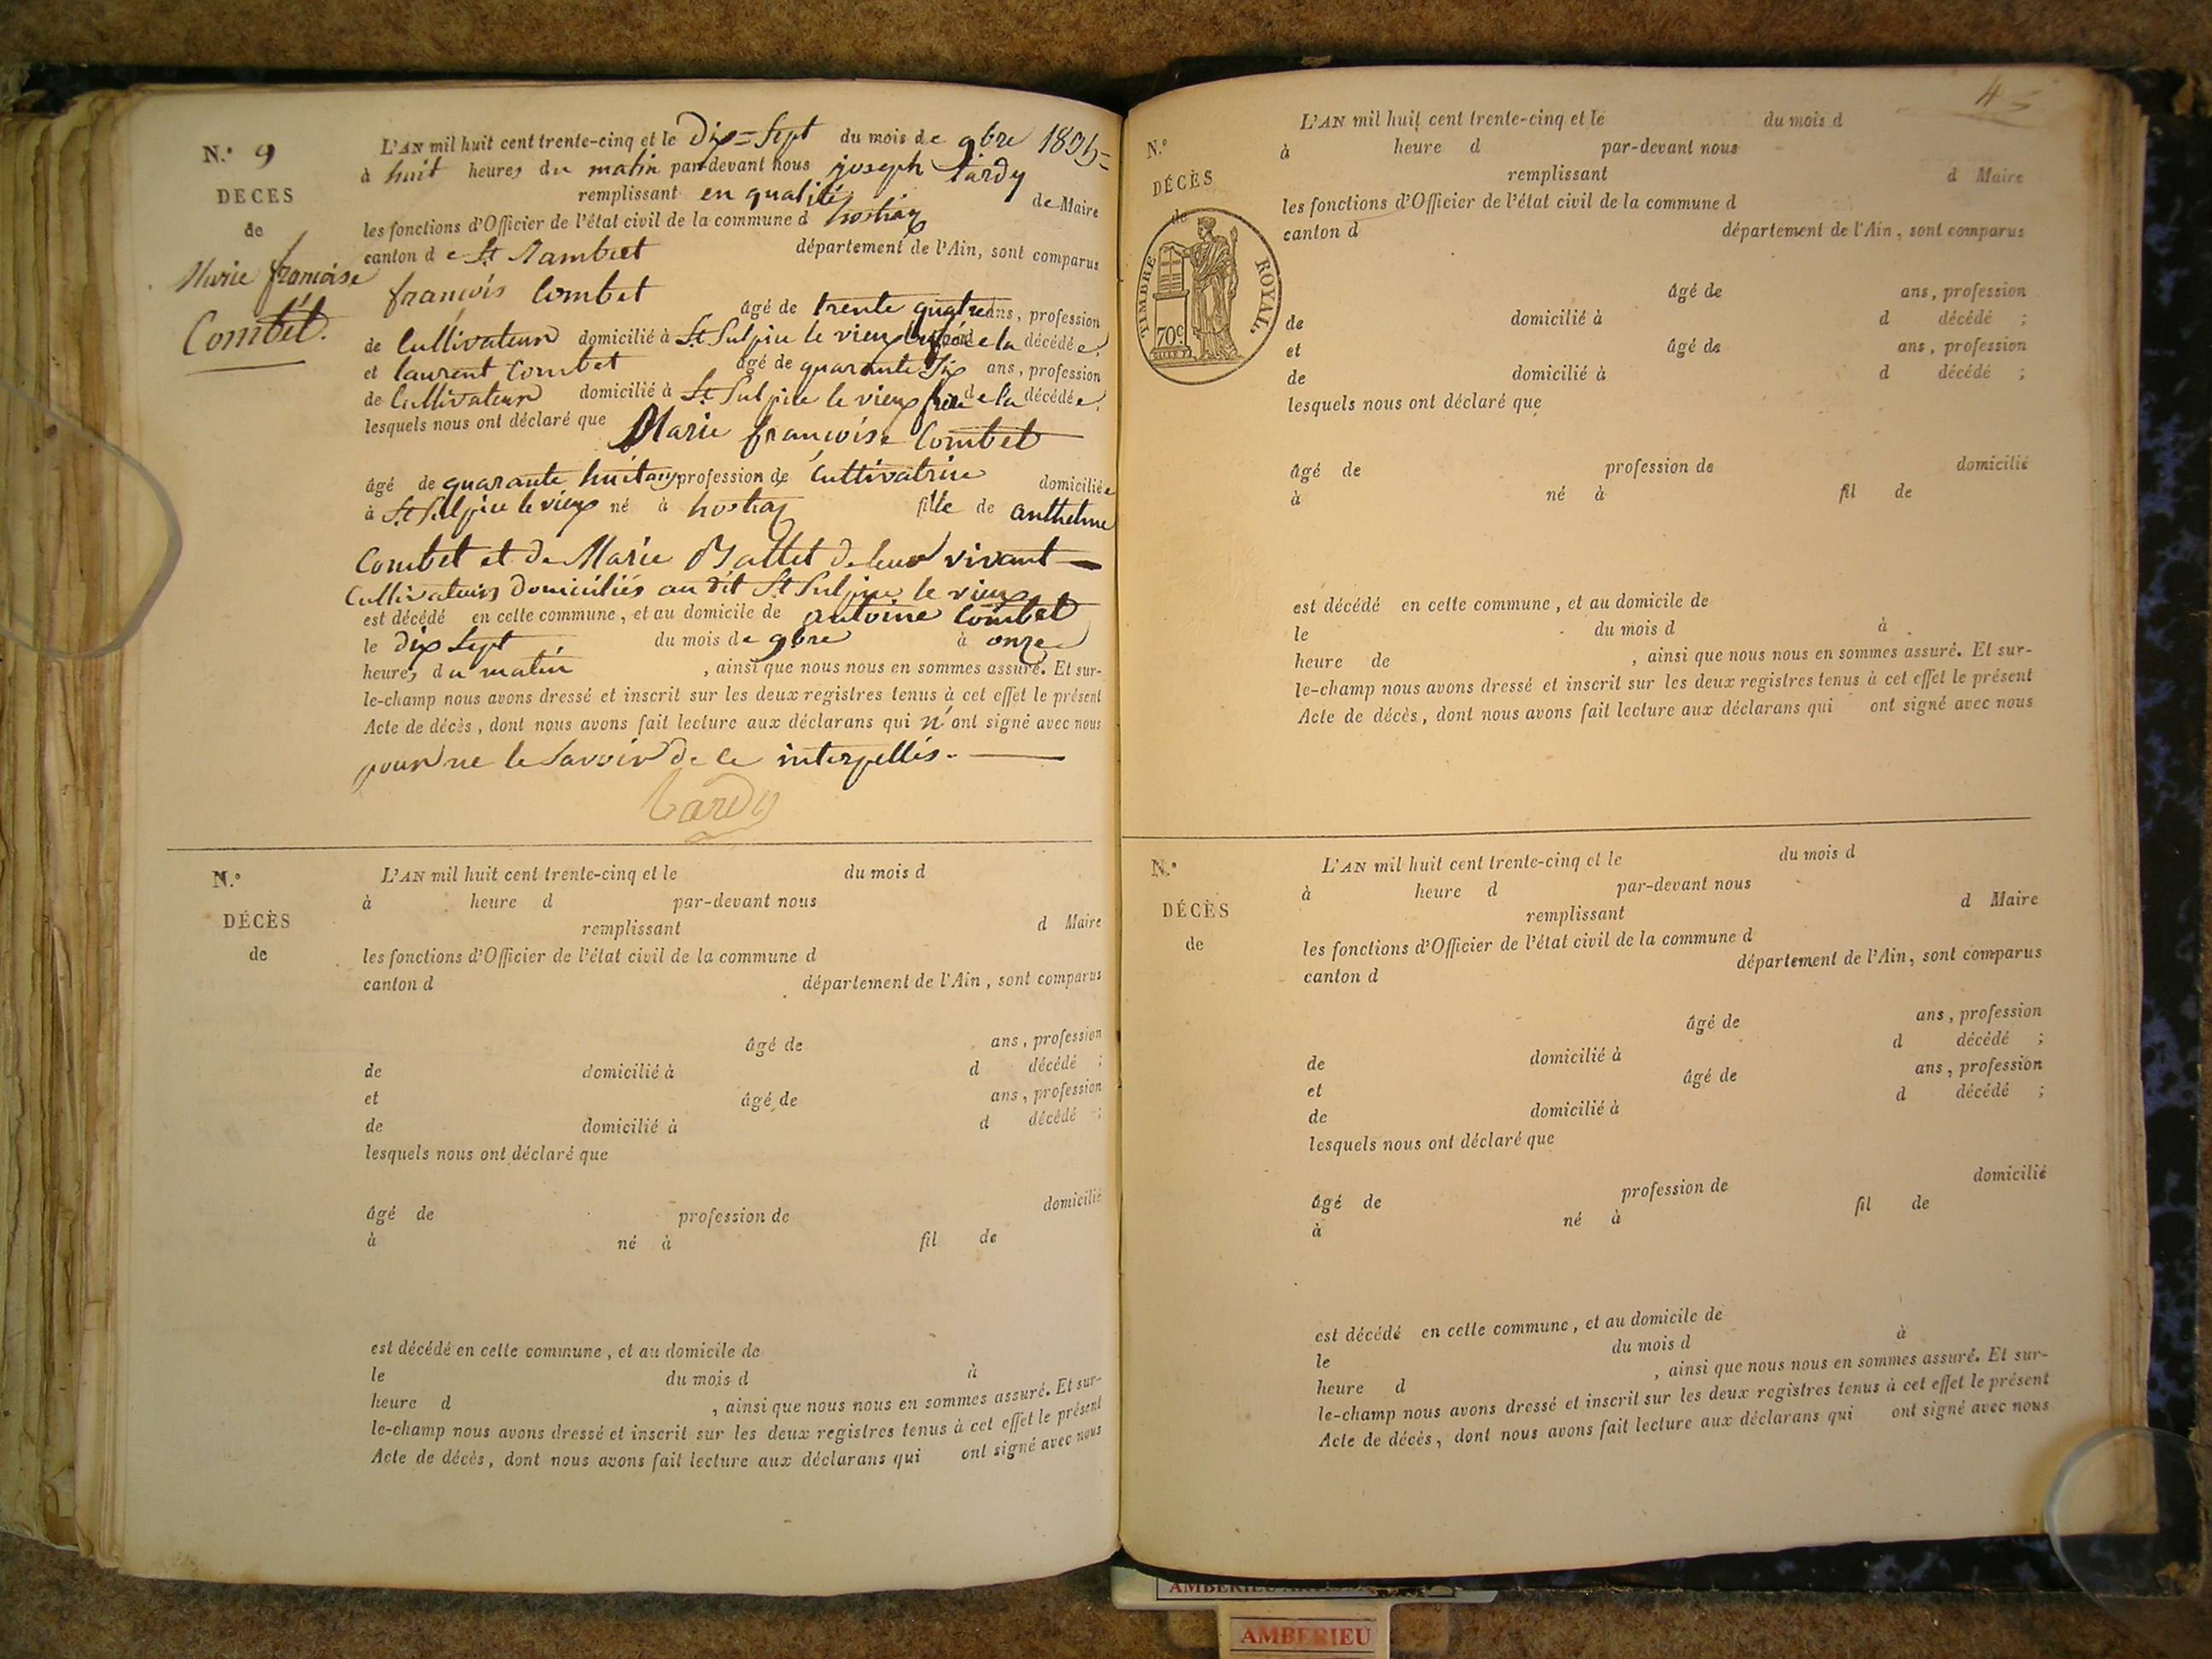 N.° 9
DECES
de
Marie françoise
Combet.
L'AN mil huit cent trente-cinq et le Dix=Sept du mois de 9bre 1835=
à huit heures du matin par-devant nous joseph tardy
remplissant en qualité de Maire
les fonctions d'Officier de l'état civil de la commune d hostiaz
canton de St Rambert département de l'Ain, sont comparus
françois Combet âgé de trente quatre ans, profession
de Cultivateur domicilié à St Sulpice le vieux de la décédée,
et laurent Combet âgé de quarante Six ans, profession
de Cultivateur domicilié à St Sulpice le vieux frère de la décédée,
lesquels nous ont déclaré que Marie françoise Combet
âgé de quarante huit ans profession de Cultivatrice domiciliée
à St Sulpice le vieux né à hostiaz fille de anthelme
Combet et de Marie Ballet de leur vivant
Cultivateurs domiciliés au dit St Sulpice le vieux
est décédé en cette commune, et au domicile de antoine Combet
le dix Sept du mois de 9bre à onze
heures du matin , ainsi que nous nous en sommes assuré. Et sur-
le-champ nous avons dressé et inscrit sur les deux registres tenus à cet effet le présent
Acte de décès, dont nous avons fait lecture aux déclarans qui n'ont signé avec nous
pour ne le Savoir de ce interpellés.
tardy
N.°
DÉCÈS
de
L'AN mil huit cent trente-cinq et le du mois d
à heure d par-devant nous
remplissant d Maire
les fonctions d'Officier de l'état civil de la commune d
canton d département de l'Ain, sont comparus
âgé de ans, profession
de domicilié à d décédé ;
et âgé de ans, profession
de domicilié à d décédé ;
lesquels nous ont déclaré que
âgé de profession de domicilié
à né à fil de
est décédé en cette commune, et au domicile de
le du mois d à
heure d , ainsi que nous nous en sommes assuré. Et sur-
le-champ nous avons dressé et inscrit sur les deux registres tenus à cet effet le présent
Acte de décès, dont nous avons fait lecture aux déclarans qui ont signé avec nous
45
N.°
DÉCÈS
de
TIMBRE ROYAL.
70c.
L'AN mil huit cent trente-cinq et le du mois d
à heure d par-devant nous
remplissant d Maire
les fonctions d'Officier de l'état civil de la commune d
canton d département de l'Ain, sont comparus
âgé de ans, profession
de domicilié à d décédé ;
et âgé de ans, profession
de domicilié à d décédé ;
lesquels nous ont déclaré que
âgé de profession de domicilié
à né à fil de
est décédé en cette commune, et au domicile de
le du mois d à
heure de , ainsi que nous nous en sommes assuré. Et sur-
le-champ nous avons dressé et inscrit sur les deux registres tenus à cet effet le présent
Acte de décès, dont nous avons fait lecture aux déclarans qui ont signé avec nous
N.°
DÉCÈS
de
L'AN mil huit cent trente-cinq et le du mois d
à heure d par-devant nous
remplissant d Maire
les fonctions d'Officier de l'état civil de la commune d
canton d département de l'Ain, sont comparus
âgé de ans, profession
de domicilié à d décédé ;
et âgé de ans, profession
de domicilié à d décédé ;
lesquels nous ont déclaré que
âgé de profession de domicilié
à né à fil de
est décédé en cette commune, et au domicile de
le du mois d à
heure d , ainsi que nous nous en sommes assuré. Et sur-
le-champ nous avons dressé et inscrit sur les deux registres tenus à cet effet le présent
Acte de décès, dont nous avons fait lecture aux déclarans qui ont signé avec nous
AMBERIEU
AMBERIEU